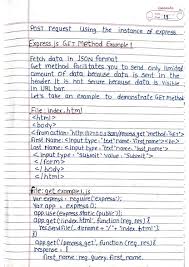 13
Post request using the instance of express
Express.js GET Method Example 1
Fetch data in JSON format
Get method facilitates you to send only limited
amount of data because data is sent in the
header. It is not secure because data is visible
in URL bar.
Let's take an example to demonstrate GET Method
File: index.html
<html>
<body>
<form action="http://127.0.0.1:8081/process_get" method="GET">
First Name: <input type="text" name="first_name"> <br>
Last Name: <input type="text" name="last_name">
<input type="submit" value="Submit">
</form>
</body>
</html>
File: get_example1.js
var express = require('express');
var app = express();
app.use(express.static('public'));
app.get('/index.html', function (req, res) {
res.sendFile(__dirname + "/" + "index.html");
})
app.get('/process_get', function (req, res) {
response = {
first_name: req.query.first_name,